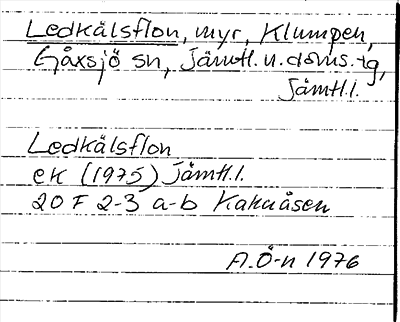 Ledkälsflon, myr, Klumpen,
Gåxsjö sn, Jämtl. n. doms. tg,
Jämtl.l.
Ledkälsflon
ek (1975) Jämtl.l.
20 F 2-3 a-b Kakuåsen
A.Ö-n 1976